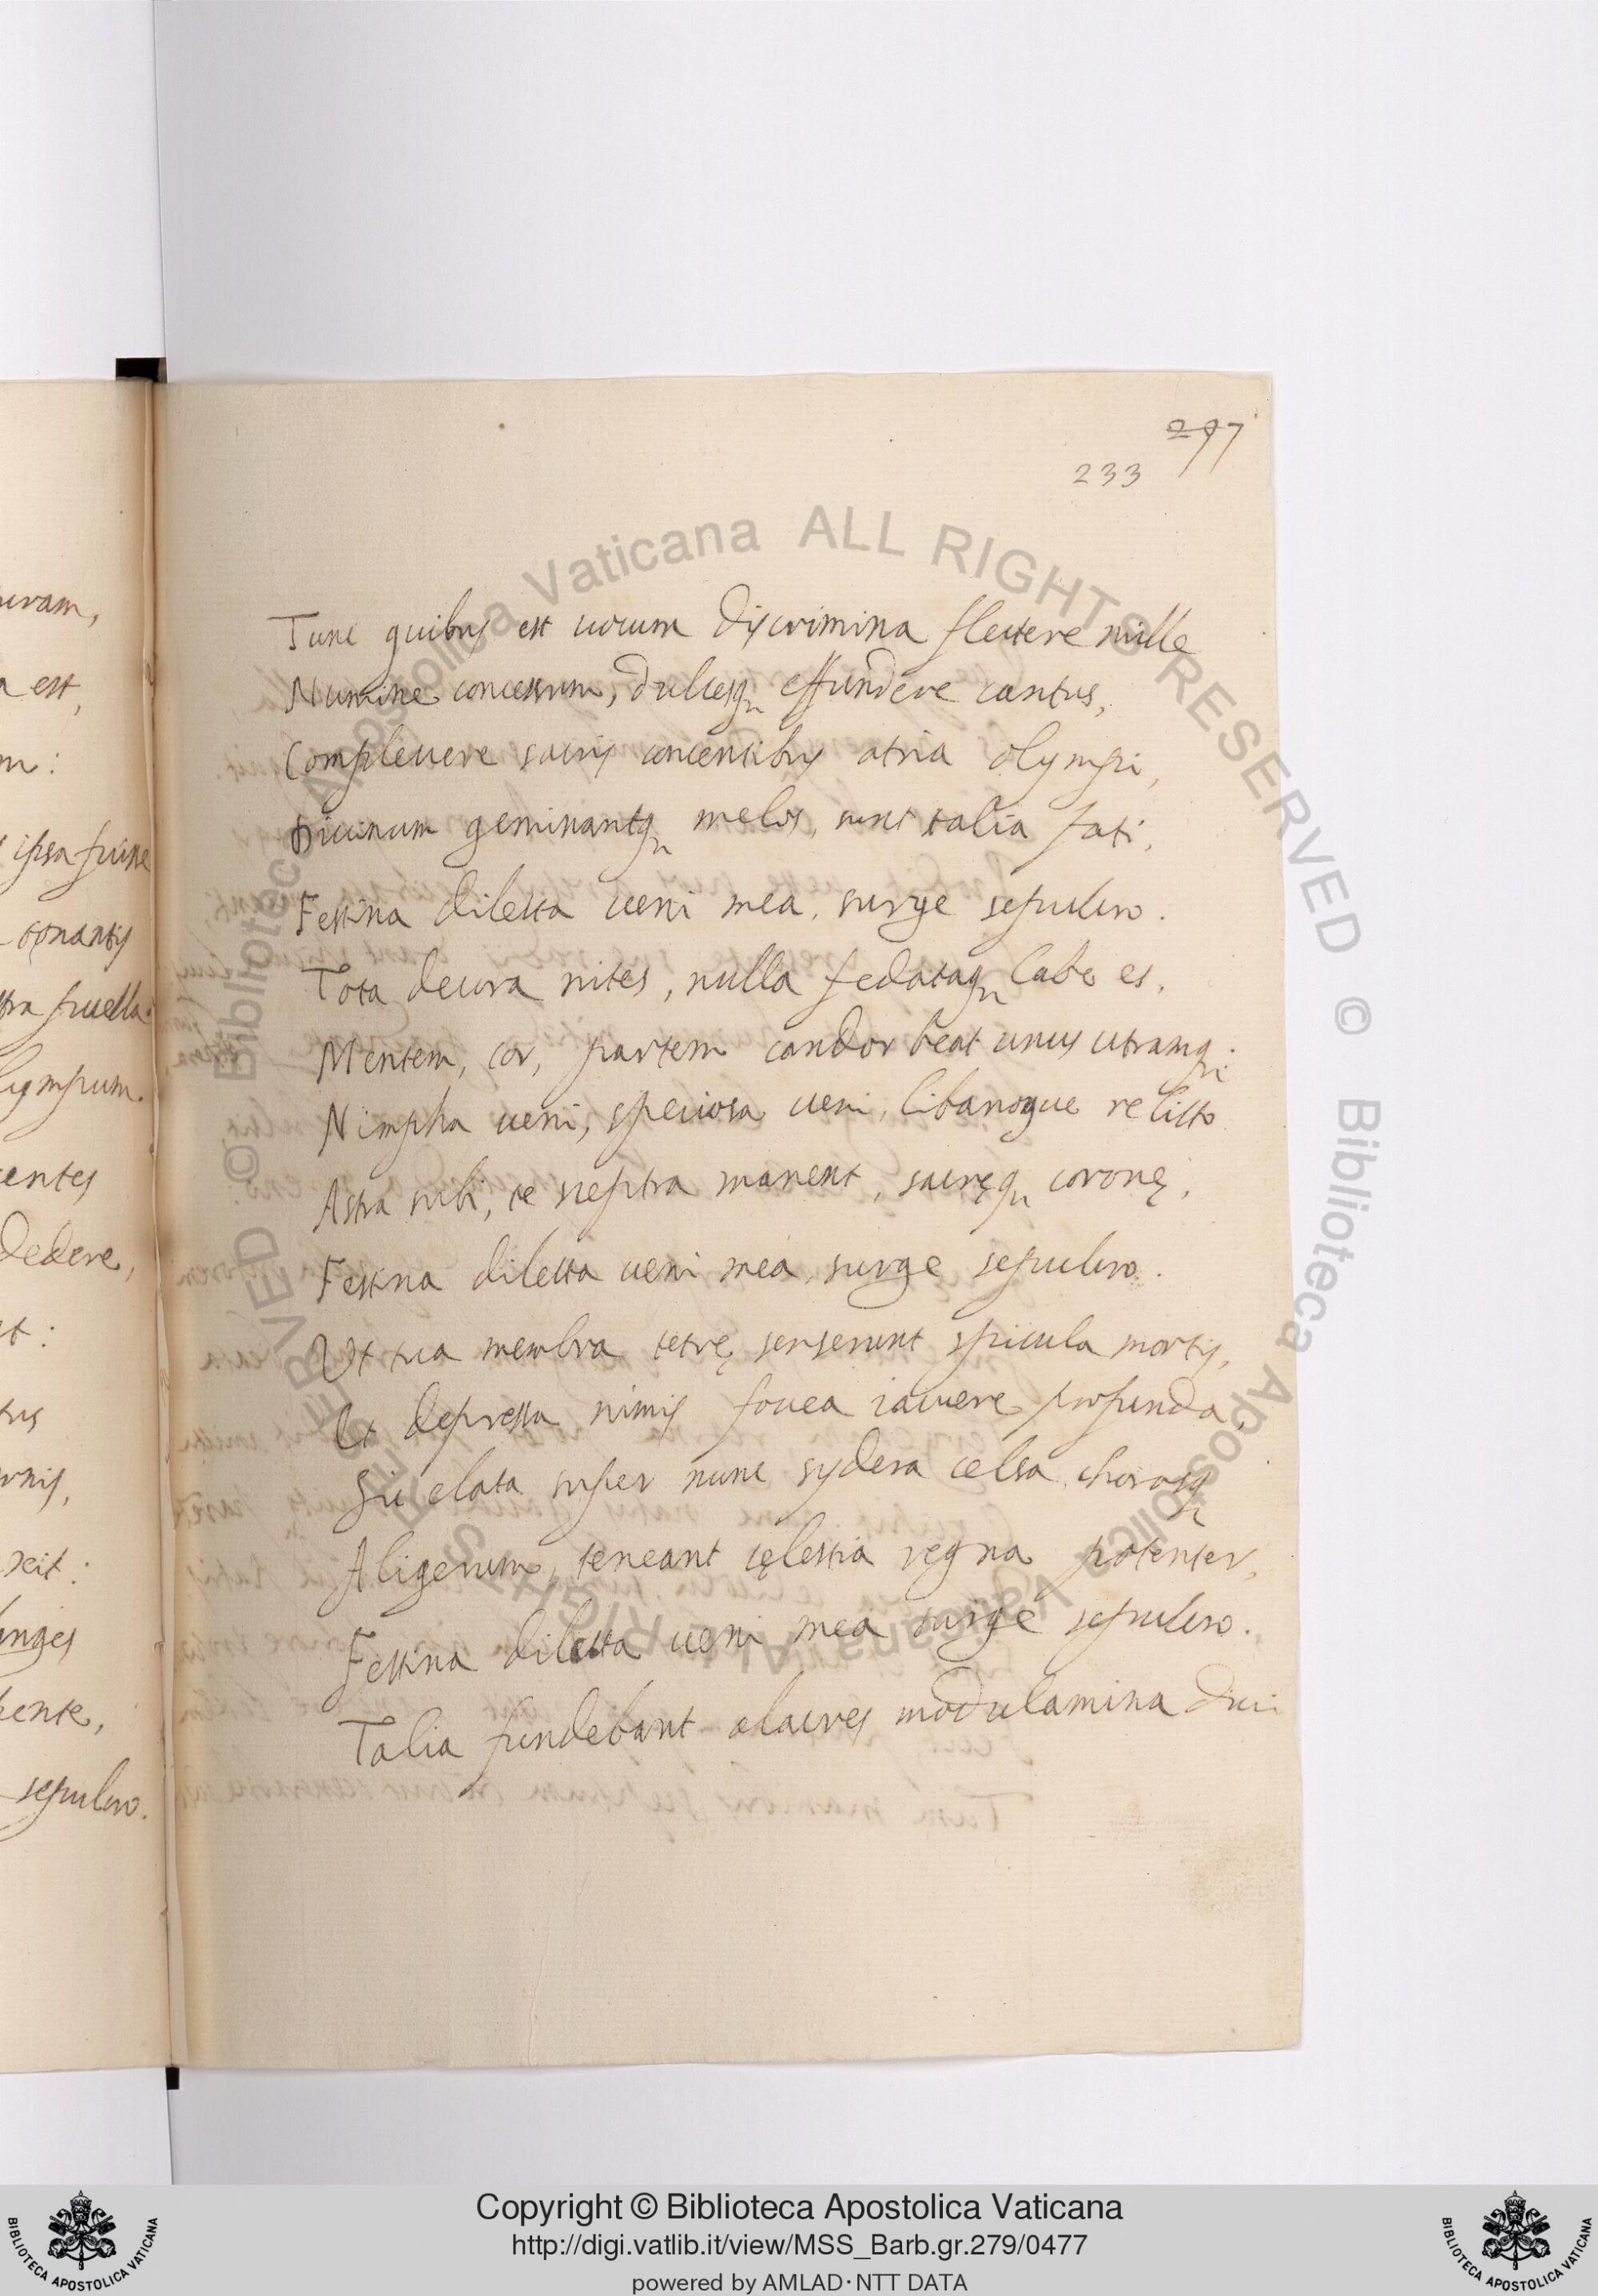 297
233
Tunc quibus est uocum discrimina flectere mille
Numine concessum, dulcesq; effundere cantus,
Compleuere sacris concentibus atria olympi,
Diuinum geminantq; melos, sunt talia fati,
Festina dilecta ueni mea, surge sepulcro.
Tota decora nites, nulla fedataq; labe es,
Mentem, cor, partem candor beat unus utramq;:
Nimpha ueni, speciosa ueni, libanoque relicto
Astra subi, te sceptra manent, sacręq; coronę,
Festina dilecta ueni mea, surge sepulcro.
Vt tua membra tetrę senserunt spicula mortis,
Et depressa nimis fouea iacuere profunda,
Sic elata super nunc sydera celsa, chorosq;
Aligerum, teneant cęlestia regna potenter,
Festina dilecta ueni mea surge sepulcro.
Talia fundebant alacres modulamina diui
uram,
a est,
m:
ipsa fuisse
tonantis
tra puella.
lympum.
centes
dedere,
t:
tus
rnis,
xit:
anges
pente,
sepulcro.
© Biblioteca Apostolica Vaticana ALL RIGHTS RESERVED © Biblioteca Apostolica Vaticana ALL RIGHTS RESERVED
Copyright © Biblioteca Apostolica Vaticana
http://digi.vatlib.it/view/MSS_Barb.gr.279/0477
powered by AMLAD·NTT DATA
BIBLIOTECA APOSTOLICA VATICANA
BIBLIOTECA APOSTOLICA VATICANA